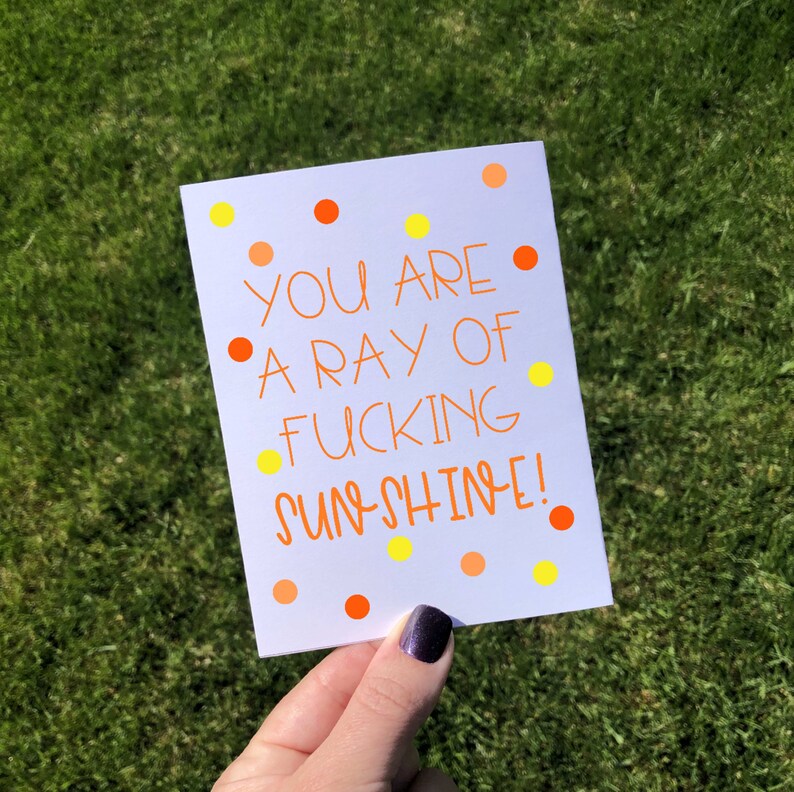 YOU ARE
A RAY OF
FUCKING
SUNSHINE!